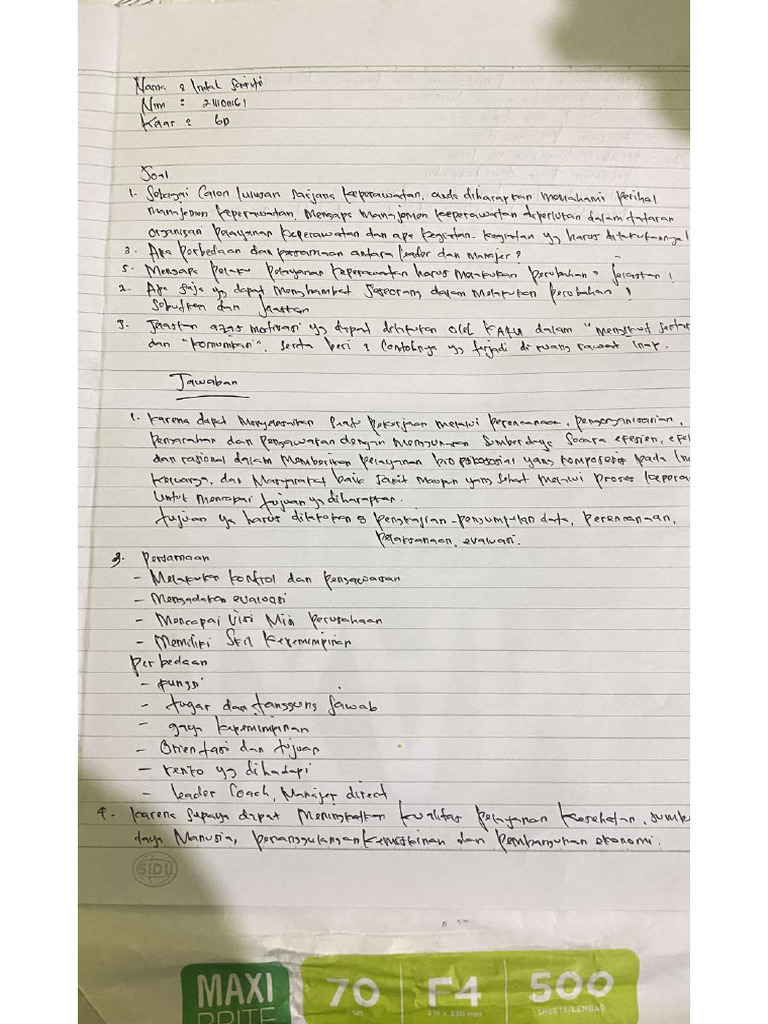 Nama : Intal
Nim : 21101161
Kelas : 6D
Soal
1. Sebagai Calon lulusan sarjana keperawatan, anda diharapkan memahami perihal
manajemen keperawatan. Mengapa manajemen keperawatan diperlukan dalam tataran
organisasi pelayanan keperawatan dan apa kegiatan-kegiatan yg harus dilakukannya!
3. Apa perbedaan dan persamaan antara leader dan manajer?
5. Mengapa pelaku pelayanan keperawatan harus melakukan perubahan, jelaskan!
2. Apa saja yg dapat menghambat seseorang dalam melakukan perubahan?
Sebutkan dan jelaskan
3. Jelaskan azas motivasi yg dapat dilakukan oleh KARU dalam "mengikut serta
dan "komunikasi", serta beri contohnya yg terjadi di ruang rawat inap.
Jawaban
1. Karena dapat menyelesaikan suatu pekerjaan melalui perencanaan, pengorganisasian,
pengarahan dan pengawasan dengan menggunakan sumberdaya secara efesien, efek
dan rasional dalam memberikan pelayanan bio psikososial yang komprensif pada In
keluarga, dan Masyarakat baik sakit maupun yang sehat melalui proses keperaw
untuk mencapai tujuan yg diharapkan.
tujuan yg harus dilakukan : pengkajian - pengumpulan data, perencanaan,
pelaksanaan, evaluasi.
3. Persamaan
- Melakukan kontrol dan pengawasan
- Mengadakan evaluasi
- Mencapai Visi Misi perusahaan
- Memiliki Skil kepemimpinan
perbedaan
- fungsi
- tugas dan tanggung jawab
- gaya kepemimpinan
- Orientasi dan tujuan
- resiko yg dihadapi
- leader Coach, Manajer direct
4. Karena supaya dapat meningkatkan kualitas pelayanan kesehatan, sumbe
daya Manusia, penanggulangan kemiskinan dan pembangunan ekonomi.
SIDU
MAXI
BRITE
70
F4
215 x 330 mm
500
SHEETS/LEMBAR